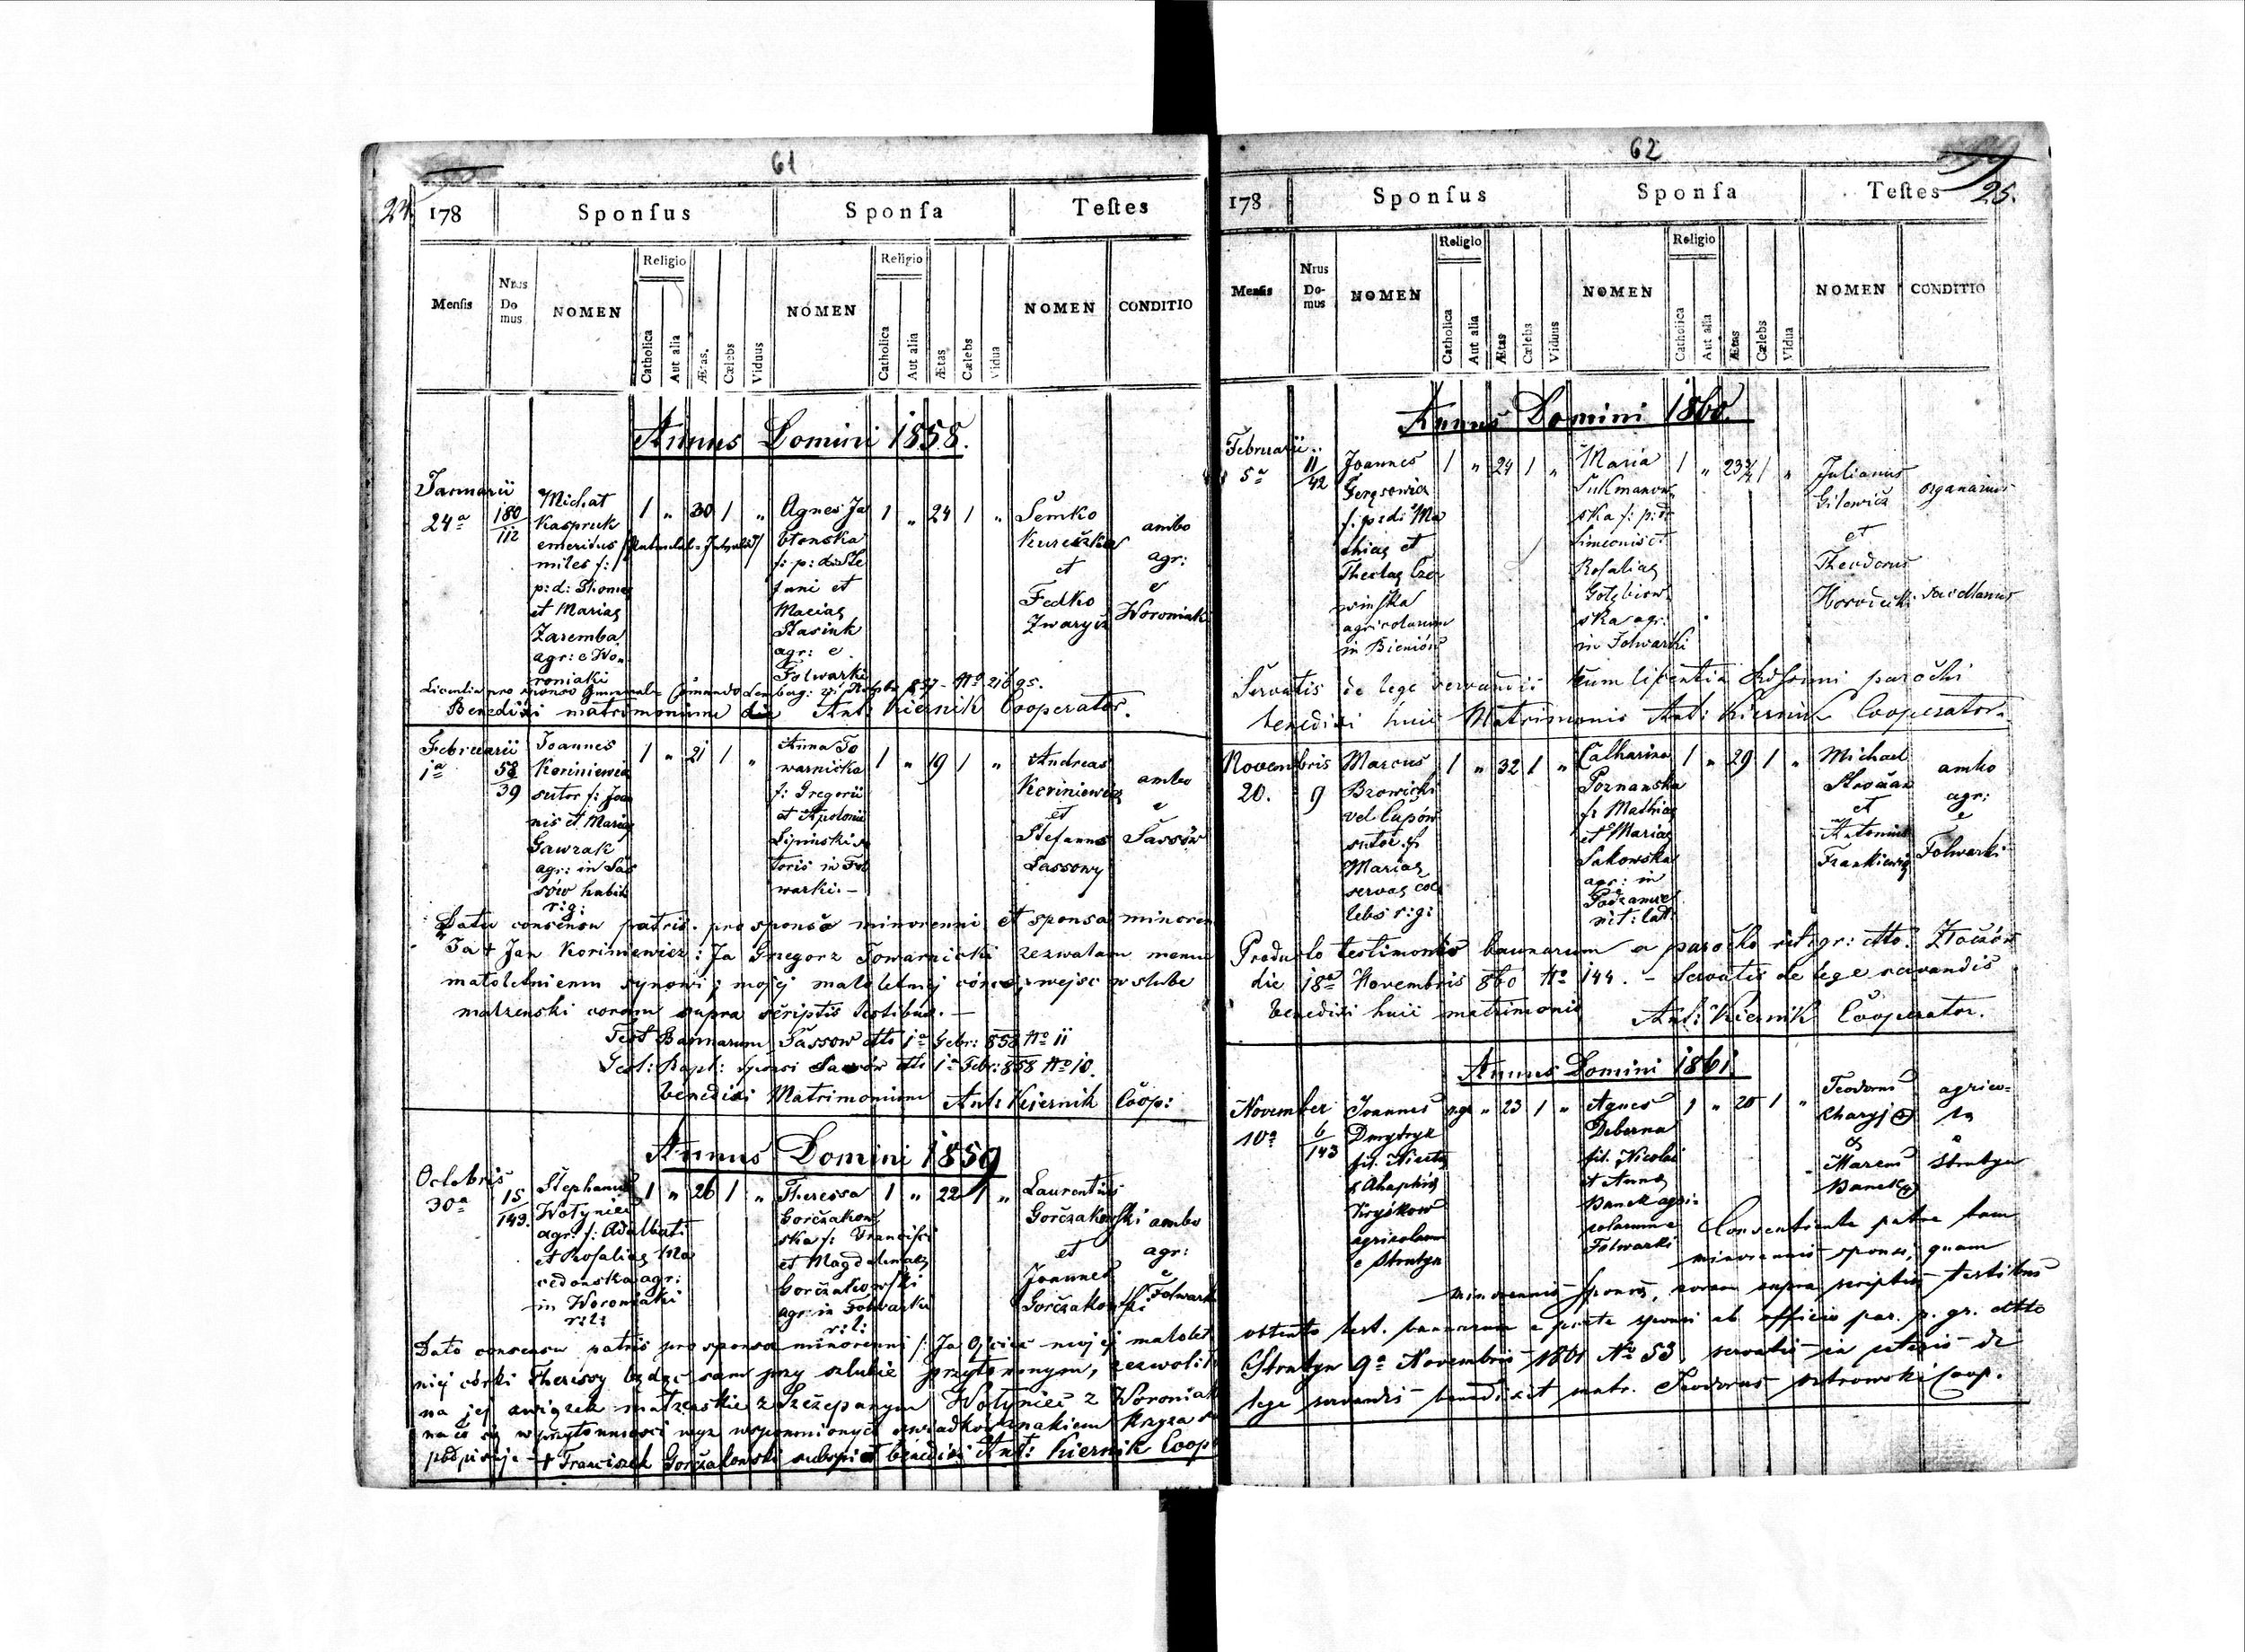 61
24.
178
Sponſus
Sponſa
Teſtes
Menſis
Nrus Do mus
NOMEN
Religio
Catholica
Aut alia
Ætas.
Cælebs
Viduus
NOMEN
Religio
Catholica
Aut alia
Ætas
Cælebs
Vidua
NOMEN
CONDITIO
Annus Domini 1858.
Januarii
24ª
180
112
Michał
Kaspruk
emeridus
miles f:
p: d: Thomę
et Marię
Zaremba
agr: e Wo
roniaki
1 " 30 1 "
Agnes Ja
błonska
f: p: d: Ste
fani et
Marię
Stasiuk
agr: e
Folwarki
1 " 24 1 "
Semko
et
Fedko
Zwarycz
ambo
agr:
e
Woroniak
Benedixi matrimonium Ant: Kiernik Cooperator.
Februarii
1ª
58
39
Joannes
Koriniewicz
sutor f: Joan
nis et Marię
Gawzak
agr: in Sas
sów habit
r: g:
1 " 21 1 "
Anna To
warnicka
f: Gregorii
et Apolonii
Lipinski su
toris in Fol
warki. –
1 " 19 1 "
Andreas
Koriniewicz
et
Stefanus
Sassowy
ambo
e
Sassów
Dato consensu patris pro sponso minorenni et sponsa minoren
Ja + Jan Koriniewicz: Ja Grzegorz Towarnicki zezwalam memu
małoletniemu synowi; mojéj małoletniéj córce, wejsc w slube
malzenski coram supra scriptis testibus. –
Test Bannarum Sassow dtto 1ª Febr: 858 Nº 11
Test: Bapt: sponsi Sassów dtto 1ª Febr: 858 Nº 10.
benedixi Matrimonium Ant: Kiernik Coop:
Annus Domini 1859
Octobris
30ª
15
143.
Stephanus
Wołyniec
agr: f: Adalberti
et Rosalię Ma
cedonska agr:
in Woroniaki
r: l:
1 " 26 1 "
Theressa
Gorczakow
ska f: Francisci
et Magdalenaę
Gorczakowski
agr: in Folwarki
r: l:
1 " 22 1 "
Laurentius
Gorczakowski
et
Joannes
Gorczakowski
ambo
agr:
e
Folwark
Dato consensu patris pro sponsa minorenni /: Ja Ojciec mojéj małolet
niéj córki Theressy będąc sam przy szlubie przytomnym, zezwoli
na jej związek małżeński z Szczepanym Wołyniec z Woroniak
na co się w przytomnosci wyz wspomnionych swiadków znakiem Krzyza
podpisuje + Franciszek Gorczakowski benedixi Ant: Kiernik Coop
62
25.
178
Sponſus
Sponſa
Teſtes
Menſis
Nrus Do-mus
NOMEN
Religio
Catholica
Aut alia
Ætas
Cælebs
Viduus
NOMEN
Religio
Catholica
Aut alia
Ætas
Cælebs
Vidua
NOMEN
CONDITIO
Annus Domini 1860.
Februarii
5ª
11
42
Joannes
f: p: d: Ma
thię et
Theclę Cze
winska
agricolarum
in Bieniów
1 " 24 1 "
Maria
Sukmanow
ska f: p: d:
Simeonis et
Rosalię
Gołębiow
ska agr:
in Folwarki
1 " 23 ¾ 1 "
Julianus
Gilewicz
et
Theodorus
organarius
Servatis de lege servandis cum licentia parochi
benedixi huic Matrimonio Ant: Kiernik Cooperator.
Novembris
20.
9
Marcus
Browicki
vel Cupów
sutor f:
Marię
servaę cæ
lebs r: g:
1 " 32 1 "
Catharina
Poznanska
f: Mathię
et Marię
Sakowska
agr: in
Podzamcze
rit: lat:
1 " 29 1 "
Michael
et
Antonius
Frankiewicz
ambo
agr:
e
Folwarki
Producto testimonio bannarum a parocho rit: gr: dtto: Złoczów
die 18ª Novembris 860 Nº 144. – Servatis de lege servandis
benedixi huic matrimonio Ant: Kiernik Cooperator.
Annus Domini 1861.
November
10ª
6
143
Joannes
Dmytryk
fil. Nicetę
& Ahaphię
agricolarum
e Strutyn
r.g. " 23 1 "
Agnes
Deberna
fil. Nicolai
et Annę
Banek agri-
colarum e
Folwarki
1 " 20 1 "
Teodorus
Charyj (+)
&
Marcus
Banek (+)
agrico-
la
e
Strutyn
Consentiente patre tam
minorennis sponsi, quam
minorennis sponsę, coram supra scriptis testibus
obtento test. bannorum a parte sponsi ab officio par. p. gr. dtto
Strutyn 9ª Novembris 1861 Nº 53, servatis in ceteris de
lege servandis benedixit matr. Teodorus Ostrowski Coop.